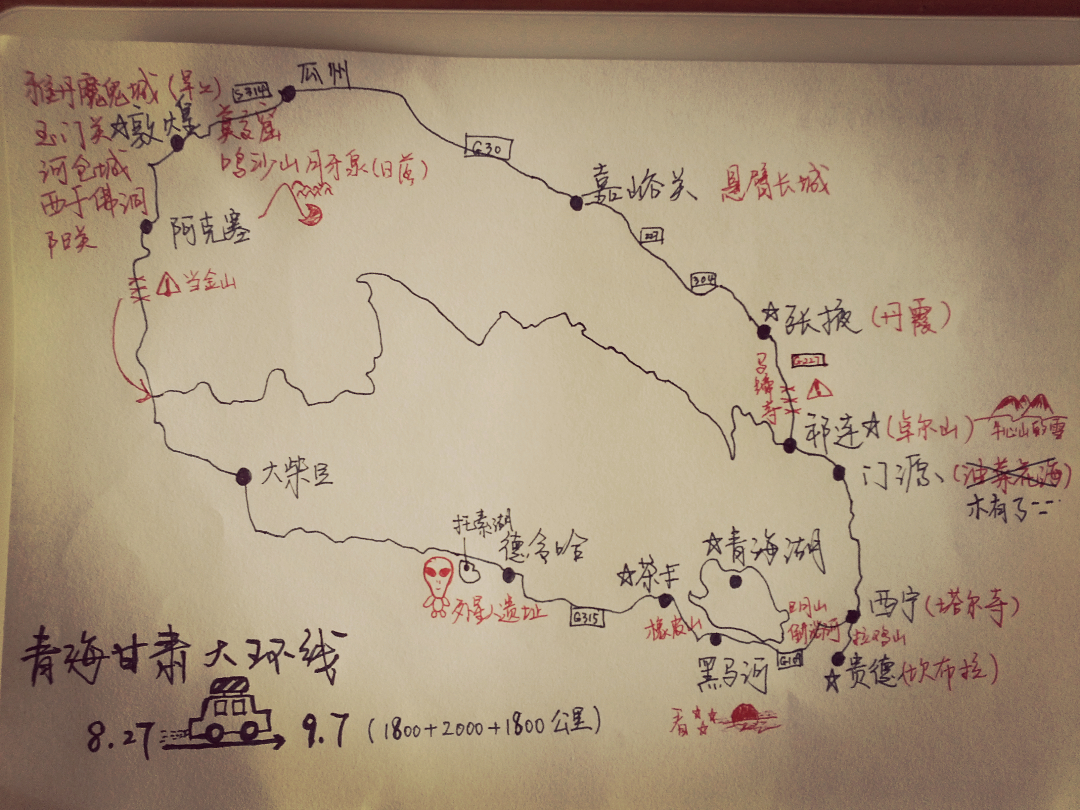 雅丹魔鬼城(早上)
S314
瓜州
玉门关
☆敦煌
莫高窟
河仓城
鸣沙山月牙泉(日落)
G30
西千佛洞
阳关
阿克塞
嘉峪关
悬臂长城
227
当金山
304
☆张掖(丹霞)
G227
马蹄寺
祁连☆(卓尔山)
牛心山的雪
门源、(油菜花海)
木有了--
大柴旦
托素湖
德令哈
☆青海湖
☆茶卡
外星人遗址
G315
橡皮山
日月山
倒淌河
西宁(塔尔寺)
拉鸡山
黑马河
G109
☆贵德(坎布拉)
看
青海甘肃大环线
8.27
9.7(1800+2000+1800公里)